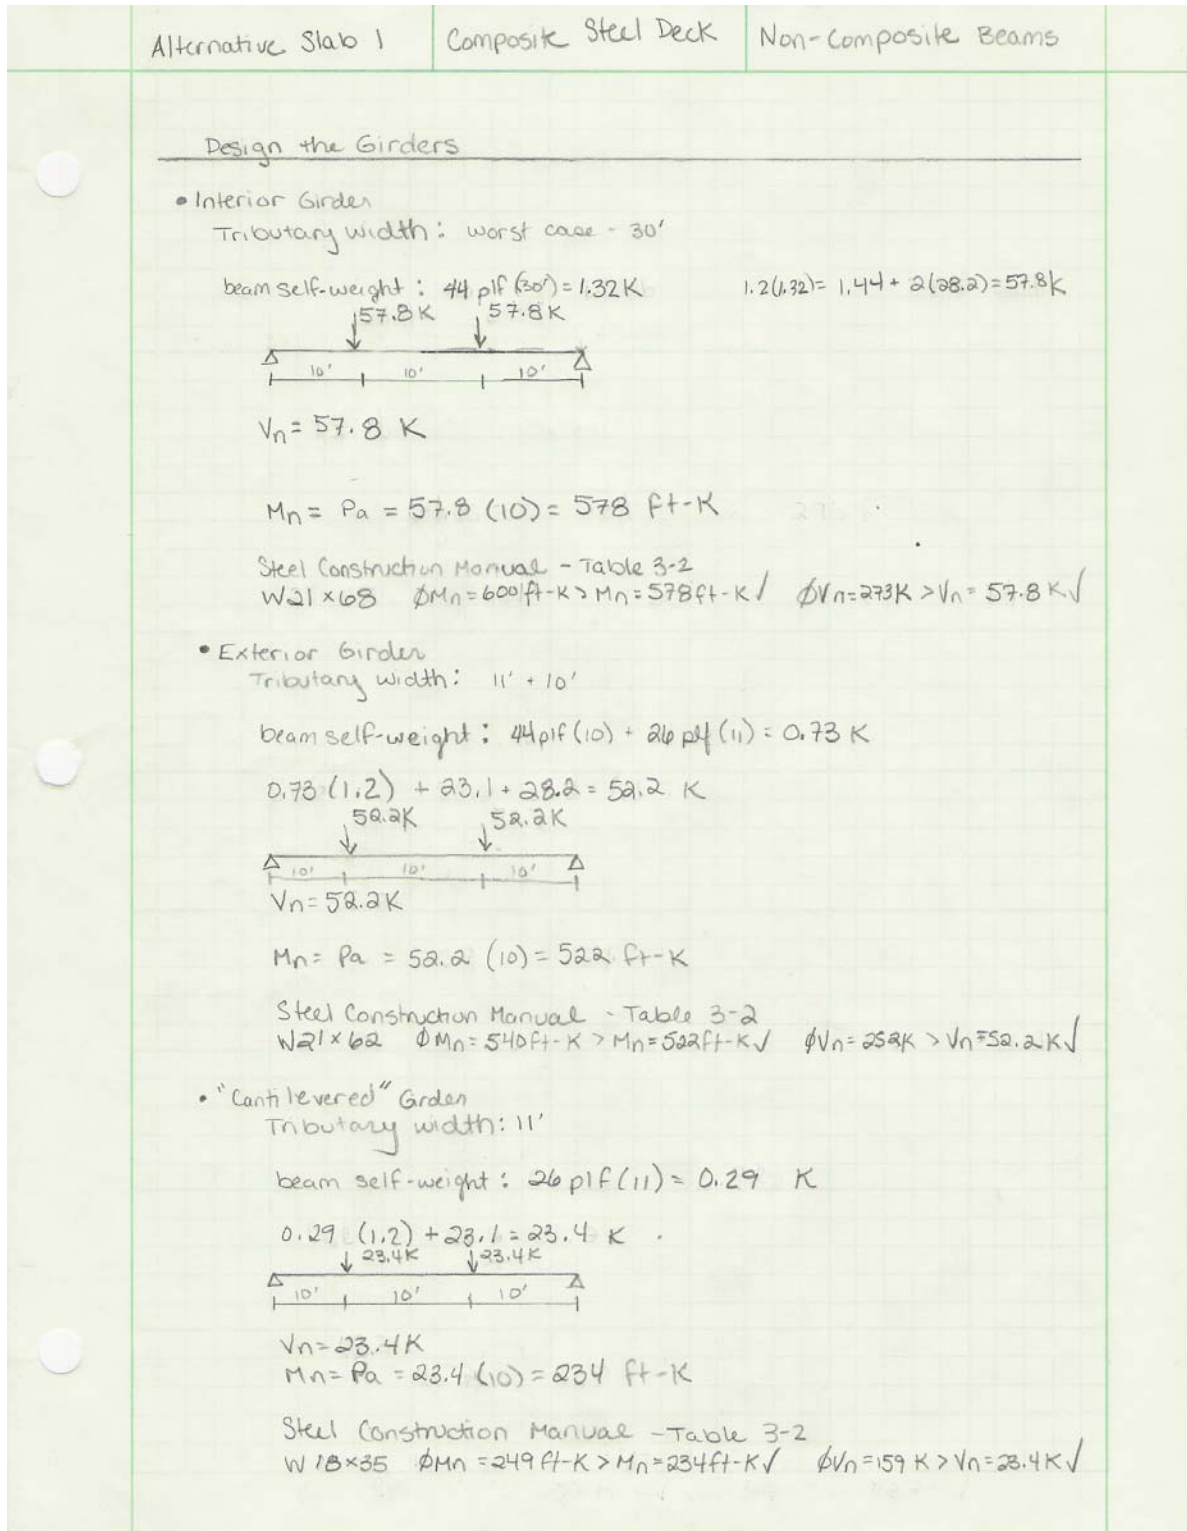 Alternative Slab 1 Composite Steel Deck Non-Composite Beams
Design the Girders
• Interior Girder
Tributary width: worst case - 30'
beam self-weight: 44 plf (30') = 1.32 K 1.2(1.32) = 1.44 + 2(28.2) = 57.8 k
57.8 K 57.8 K
10' 10' 10'
Vn = 57.8 K
Mn = Pa = 57.8 (10) = 578 ft-K
Steel Construction Manual - Table 3-2
W21×68 ϕMn = 600 ft-K > Mn = 578 ft-K ✓ ϕVn = 273 K > Vn = 57.8 K ✓
• Exterior Girder
Tributary width: 11' + 10'
beam self-weight: 44 plf (10) + 26 plf (11) = 0.73 K
0.73 (1.2) + 23.1 + 28.2 = 52.2 K
52.2K 52.2K
10' 10' 10'
Vn = 52.2K
Mn = Pa = 52.2 (10) = 522 ft-K
Steel Construction Manual - Table 3-2
W21×62 ϕMn = 540 ft-K > Mn = 522 ft-K ✓ ϕVn = 252K > Vn = 52.2 K ✓
• "Cantilevered" Girder
Tributary width: 11'
beam self-weight: 26 plf (11) = 0.29 K
0.29 (1.2) + 23.1 = 23.4 K
23.4K 23.4K
10' 10' 10'
Vn = 23.4 K
Mn = Pa = 23.4 (10) = 234 ft-K
Steel Construction Manual - Table 3-2
W 18×35 ϕMn = 249 ft-K > Mn = 234 ft-K ✓ ϕVn = 159 K > Vn = 23.4 K ✓